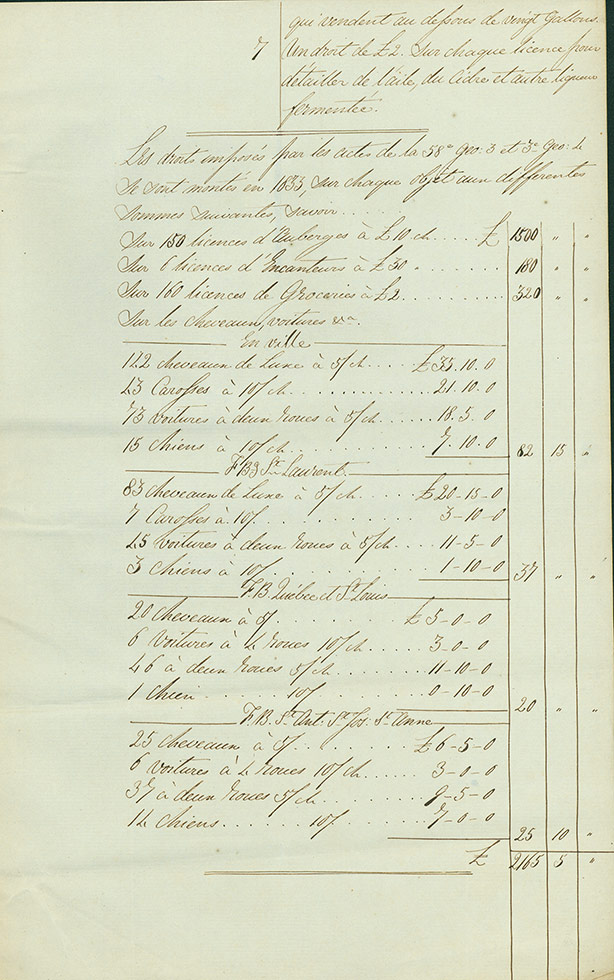 qui vendent au dessous de vingt Gallons.
7 Un droit de £2. Sur chaque licence pour
détailler de l'aile, du Cidre et autre liqueur
fermentée.
Les droits imposés par les actes de la 58e Geo: 3 et 3e Geo: 4
se sont montés en 1833, sur chaque objet aux differentes
sommes suivantes, savoir . . . .
Sur 150 licences d'Auberges à £10 ch. . . . . £ 1500 " "
Sur 6 licences d'Encanteurs à £30 " . . . . . . 180 " "
Sur 160 licences de Groceries à £2. . . . . . . 320 " "
Sur les chevaux, voitures &a.
En ville
142 chevaux de Luxe à 5/ ch. . . . £35.10.0
43 Carosses à 10/ ch. . . . . . 21.10.0
73 voitures à deux roues à 5/ ch. . . . 18.5.0
15 chiens à 10/ ch. . . . . . 7.10.0 82 15 "
F.B.J St. Laurent
83 chevaux de Luxe à 5/ ch. . . . £20-15-0
7 Carosses à 10/. . . . . . 3-10-0
45 voitures à deux roues à 5/ ch. . . . 11-5-0
3 chiens à 10/. . . . . . 1-10-0 37 " "
F.B. Québec et St. Louis
20 chevaux à 5/. . . . . . £5-0-0
6 voitures à 4 roues 10/ ch. . . . . 3-0-0
46 à deux roues 5/ ch. . . . . . 11-10-0
1 chien . . . . . . 10/ . . . . . . 0-10-0 20 " "
F.B. St. Ant: St. Jos: St. Anne
25 chevaux à 5/. . . . . . £6-5-0
6 voitures à 4 roues 10/ ch. . . . . 3-0-0
37 à deux roues 5/ ch. . . . . . 9-5-0
14 chiens. . . . . . 10/ . . . . . . 7-0-0 25 10 "
£ 2165 5 "